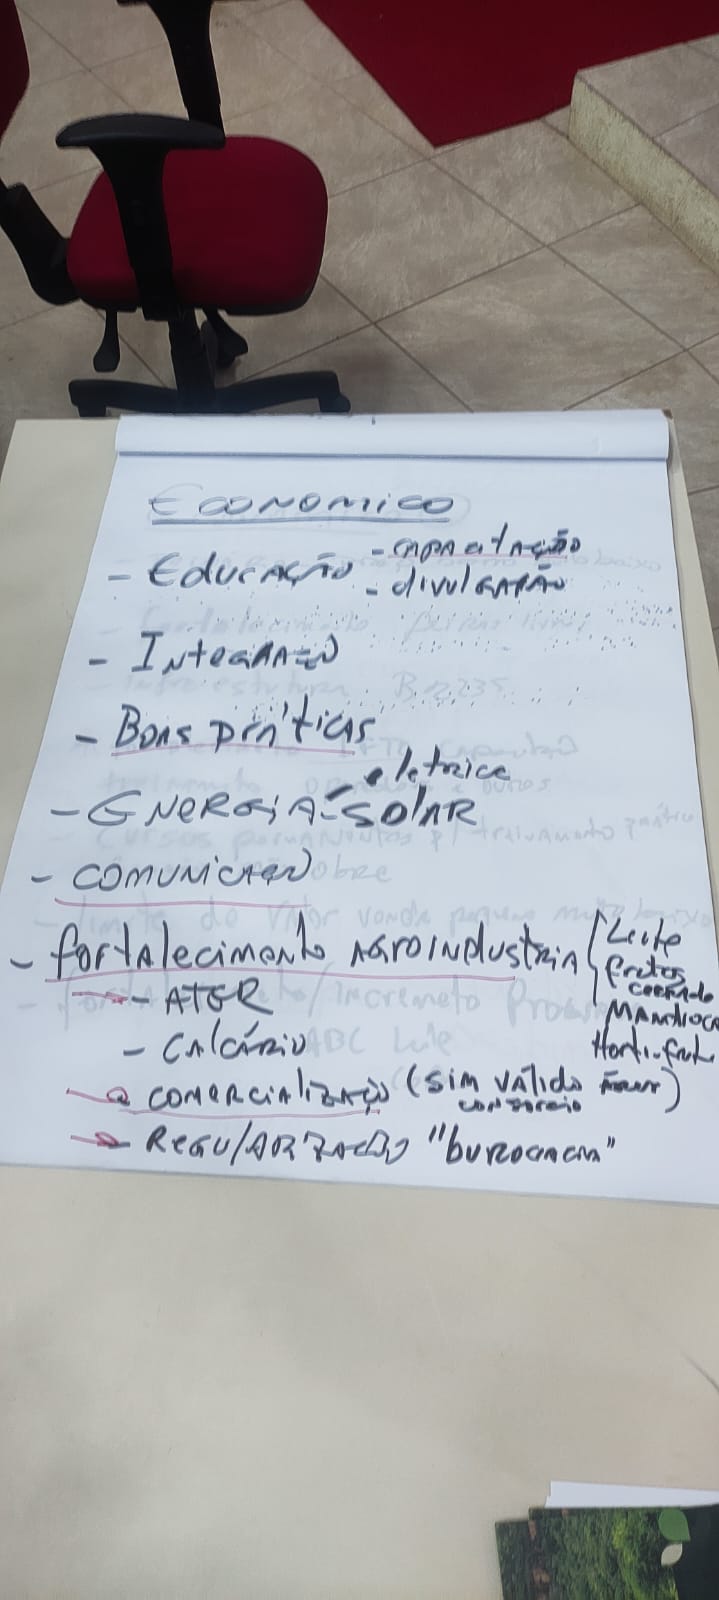 ECONOMICO
- EDUCAÇÃO - CAPACITAÇÃO
- divulgação
- INTEGRAÇÃO
- BOAS PRÁTICAS
- ENERGIA - eletrica
- SOLAR
- COMUNICAÇÃO
- fortalecimento AGROINDUSTRIA
Leite
frutos cerrado
MANDIOCA
Horti-frut
- ATER
- CALCÁRIO
COMERCIALIZAÇÃO (SIM válido
consorcio
REGULARIZAÇÃO "burocracia"